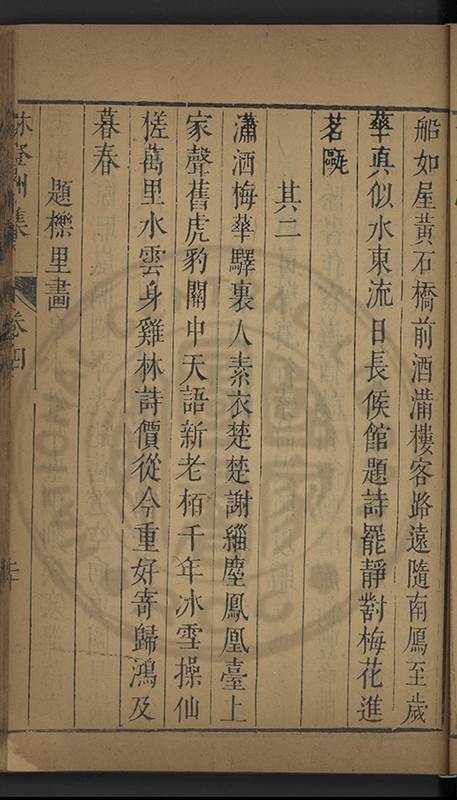 船如屋黃石橋前酒滿樓客路遠隨南鴈至歲
華真似水東流日長候館題詩罷靜對梅花進
茗甌
其二
瀟洒梅華驛裏人素衣楚楚謝緇塵鳳凰臺上
家聲舊虎豹關中天語新老栢千年冰雪操仙
槎萬里水雲身雞林詩價從今重好寄歸鴻及
暮春
題櫟里畫
林登州集
卷四